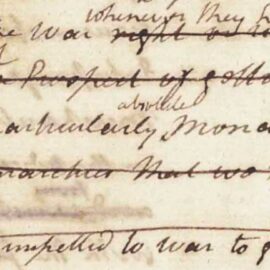 whenever they
War right or
Prospect of gett
absolute
articularly Mona
narchies that wo
impelled to war to g